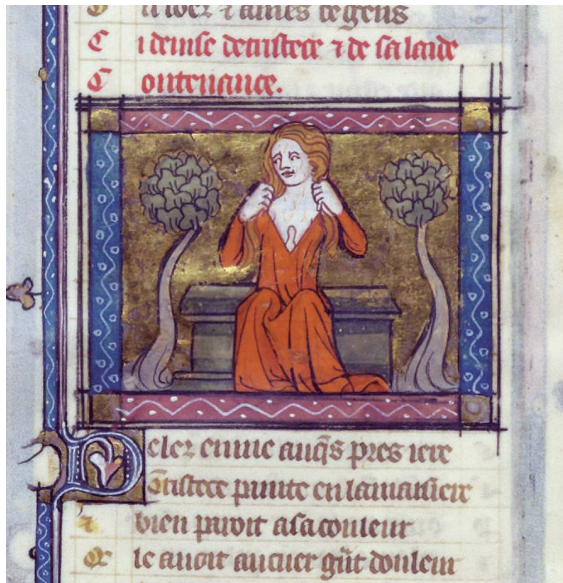 D a loer τ aínes te gens
C i deuise de tristece τ de sa laide
C ontenance.
D elez enuie auq̃s pres iere
T ristece painte en la maisiere
τ bien paroit a sa couleur
Q̃ le auoit au cuer gñt douleur